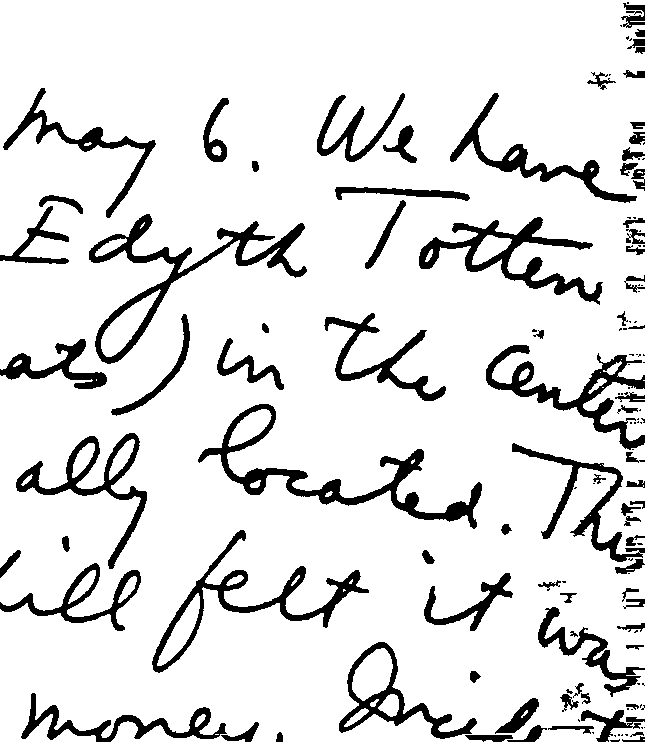 May 6. We have
Edyth Totten
ats) in the center
ally located. The
ill felt it was
money. Incident